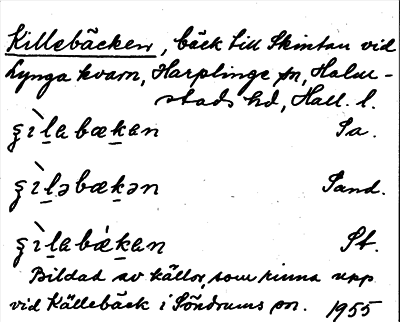 Killebäcken, bäck till Skintan vid
Lynga kvarn, Harplinge sn, Halm-
stads hd, Hall. l.
ʂìlabækan Sa.
ʂìləbækən Sand.
ʂìlabǽkan St.
Bildad av källor, som rinna upp
vid Källebäck i Söndrums sn. 1955